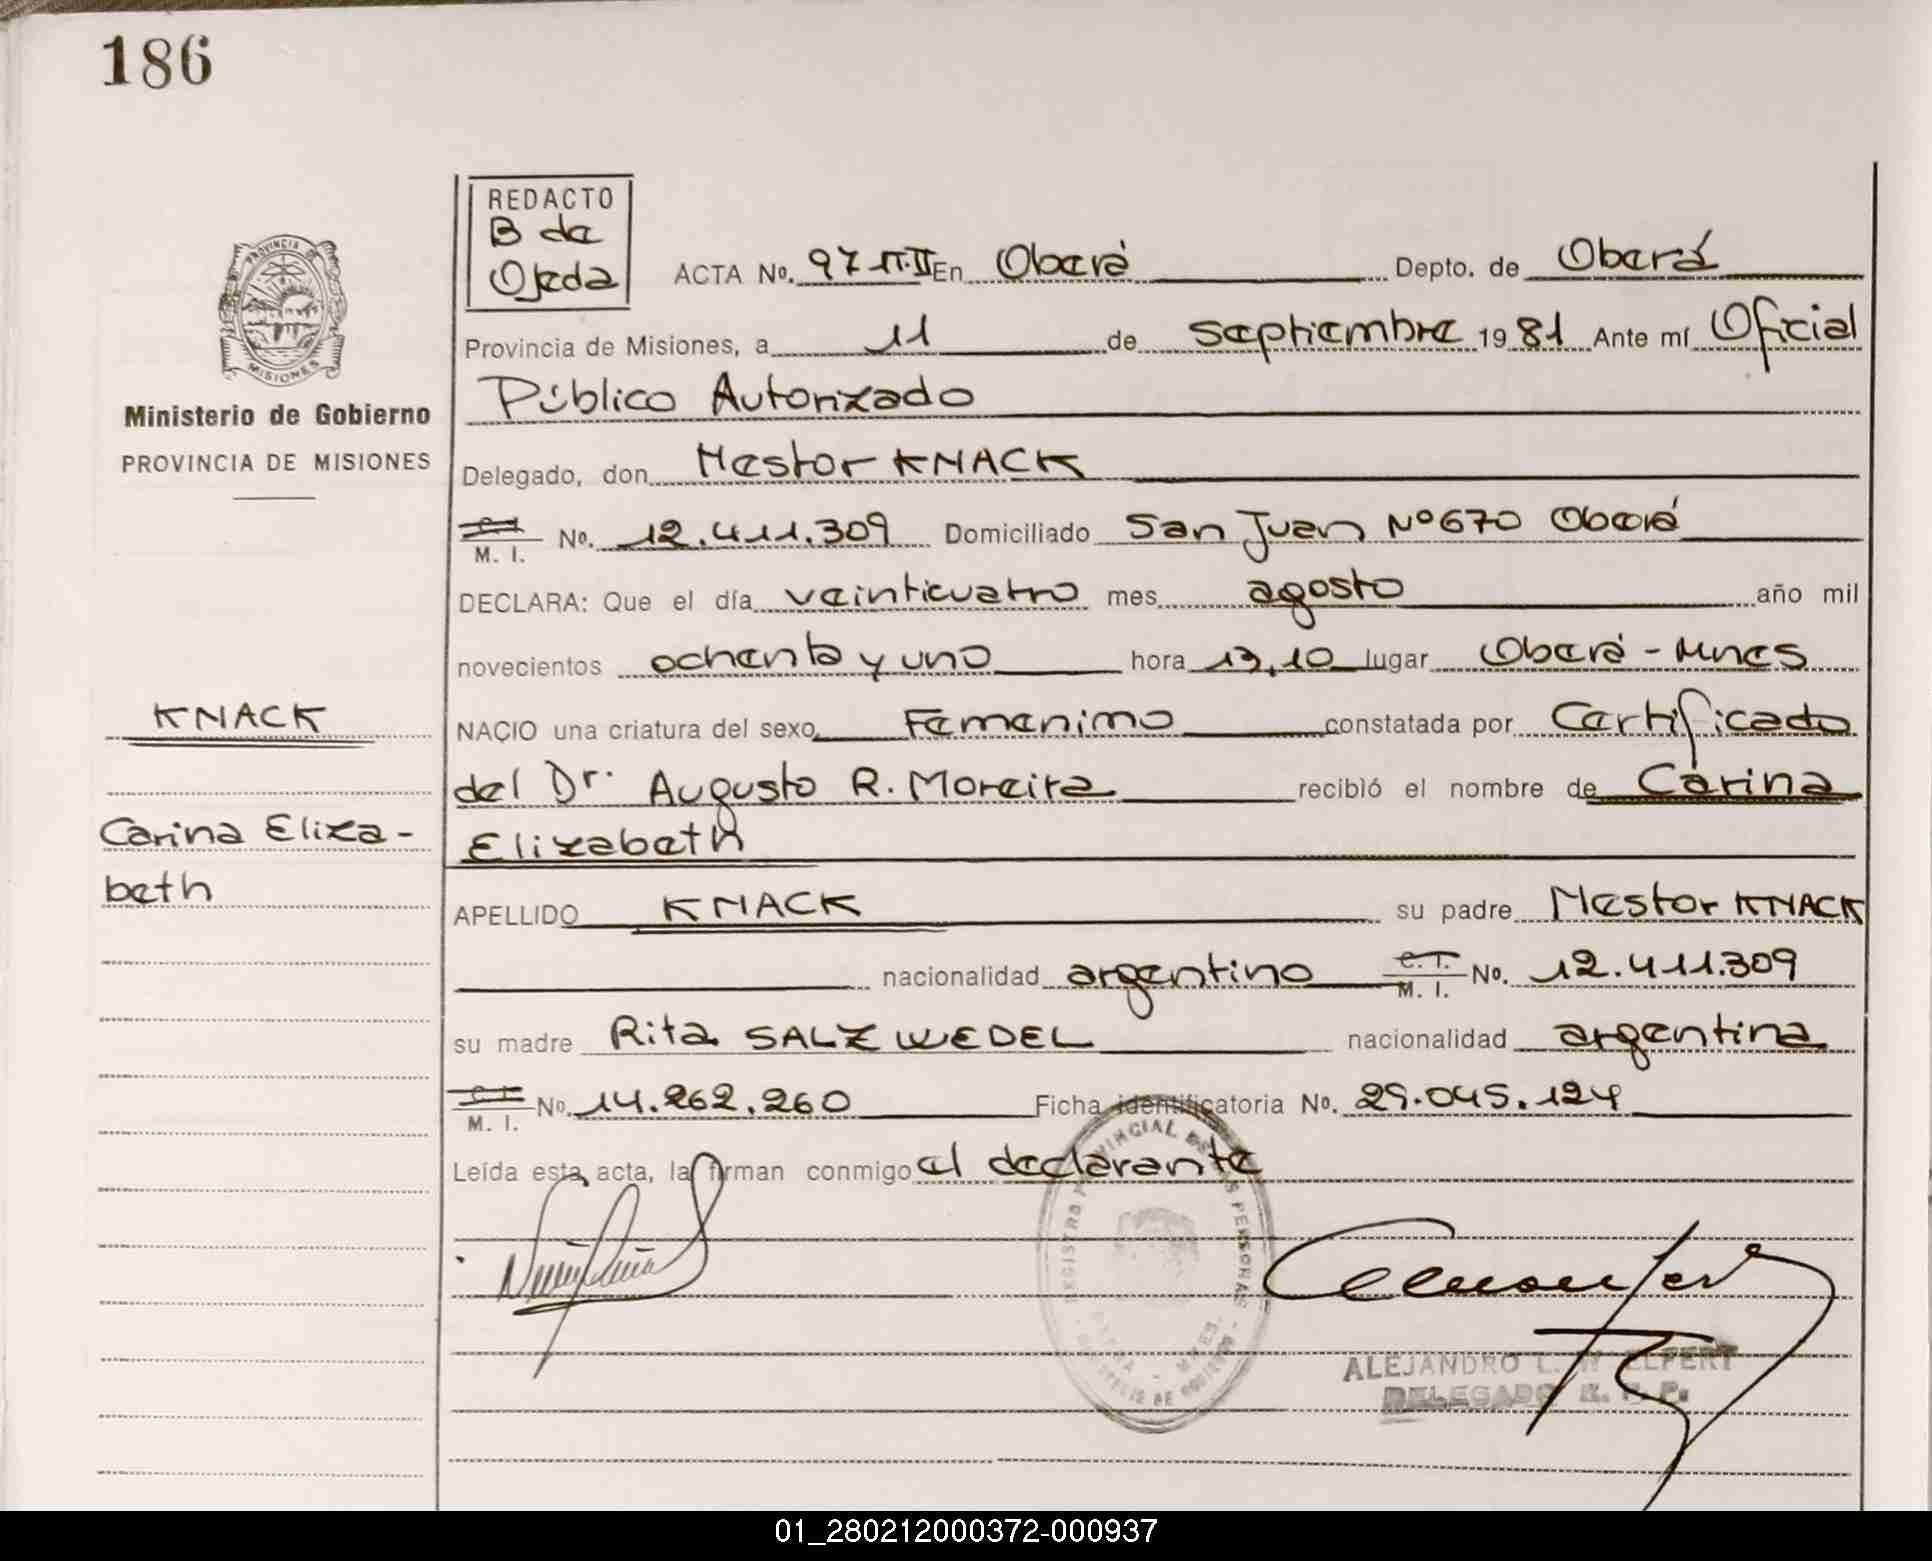 186
REDACTO
B de
Ojeda
PROVINCIA DE
MISIONES
Ministerio de Gobierno
PROVINCIA DE MISIONES
ACTA No. 97 T.II En Oberá Depto. de Oberá
Provincia de Misiones, a 11 de septiembre 19 81 Ante mí Oficial
Público Autorizado
Delegado, don Nestor KNACK
C.I.
M. I. No. 12.411.309 Domiciliado San Juan Nº 670 Oberá
DECLARA: Que el día veinticuatro mes agosto año mil
novecientos ochenta y uno hora 13,10 lugar Oberá - Mnes
KNACK
NACIO una criatura del sexo Femenino constatada por Certificado
del Dr. Augusto R. Moreira recibió el nombre de Carina
Carina Eliza-
beth
Elizabeth
APELLIDO KNACK su padre Nestor KNACK
nacionalidad argentino C. I. M. I. No. 12.411.309
su madre Rita SALZWEDEL nacionalidad argentina
C.I.
M. I. No. 14.262.260 Ficha identificatoria No. 29.045.124
Leída esta acta, la firman conmigo el declarante
REGISTRO PROVINCIAL DE LAS PERSONAS
ALEJANDRO L. W ELPERT
DELEGADO R. P. P.
01_280212000372-000937